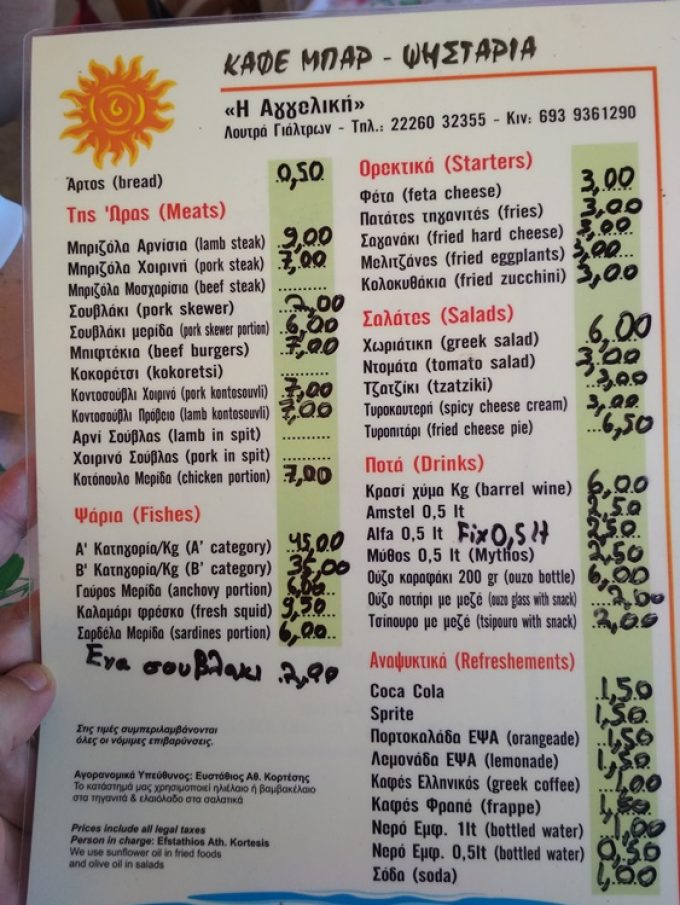 ΚΑΦΕ ΜΠΑΡ - ΨΗΣΤΑΡΙΑ
«Η Αγγελική»
Λουτρά Γιάλτρων - Τηλ.: 22260 32355 - Κιν: 693 9361290
Άρτος (bread) 0,50
Της Ώρας (Meats)
Μπριζόλα Αρνίσια (lamb steak) 9,00
Μπριζόλα Χοιρινή (pork steak) 7,00
Μπριζόλα Μοσχαρίσια (beef steak) ..........
Σουβλάκι (pork skewer) 2,00
Σουβλάκι μερίδα (pork skewer portion) 6,00
Μπιφτέκια (beef burgers) 7,00
Κοκορέτσι (kokoretsi) ..........
Κοντοσούβλι Χοιρινό (pork kontosouvli) 7,00
Κοντοσούβλι Πρόβειο (lamb kontosouvli) 7,00
Αρνί Σούβλας (lamb in spit) ..........
Χοιρινό Σούβλας (pork in spit) ..........
Κοτόπουλο Μερίδα (chicken portion) 7,00
Ψάρια (Fishes)
Α' Κατηγορία/Kg (A' category) 45,00
Β' Κατηγορία/Kg (B' category) 35,00
Γαύρος Μερίδα (anchovy portion) 6,00
Καλαμάρι φρέσκο (fresh squid) 9,50
Σαρδέλα Μερίδα (sardines portion) 6,00
Ενα σουβλακι 2,00
Στις τιμές συμπεριλαμβάνονται
όλες οι νόμιμες επιβαρύνσεις.
Αγορανομικά Υπεύθυνος: Ευστάθιος Αθ. Κορτέσης
Το κατάστημά μας χρησιμοποιεί ηλιέλαιο ή βαμβακέλαιο
στα τηγανιτά & ελαιόλαδο στα σαλατικά
Prices include all legal taxes
Person in charge: Efstathios Ath. Kortesis
We use sunflower oil in fried foods
and olive oil in salads
Ορεκτικά (Starters)
Φέτα (feta cheese) 3,00
Πατάτες τηγανιτές (fries) 3,00
Σαγανάκι (fried hard cheese) 3,00
Μελιτζάνες (fried eggplants) 3,00
Κολοκυθάκια (fried zucchini) 3,00
Σαλάτες (Salads)
Χωριάτικη (greek salad) 6,00
Ντομάτα (tomato salad) 3,00
Τζατζίκι (tzatziki) 3,00
Τυροκαυτερή (spicy cheese cream) 3,00
Τυροπιτάρι (fried cheese pie) 6,50
Ποτά (Drinks)
Κρασί χύμα Kg (barrel wine) 6,00
Amstel 0,5 lt 2,50
Alfa 0,5 lt Fix 0,5 lt 2,50
Μύθος 0,5 lt (Mythos) 2,50
Ούζο καραφάκι 200 gr (ouzo bottle) 6,00
Ούζο ποτήρι με μεζέ (ouzo glass with snack) 2,00
Τσίπουρο με μεζέ (tsipouro with snack) 2,00
Αναψυκτικά (Refreshements)
Coca Cola 1,50
Sprite 1,50
Πορτοκαλάδα ΕΨΑ (orangeade) 1,50
Λεμονάδα ΕΨΑ (lemonade) 1,50
Καφές Ελληνικός (greek coffee) 1,00
Καφές Φραπέ (frappe) 1,50
Νερό Εμφ. 1lt (bottled water) 1,00
Νερό Εμφ. 0,5lt (bottled water) 0,50
Σόδα (soda) 1,00